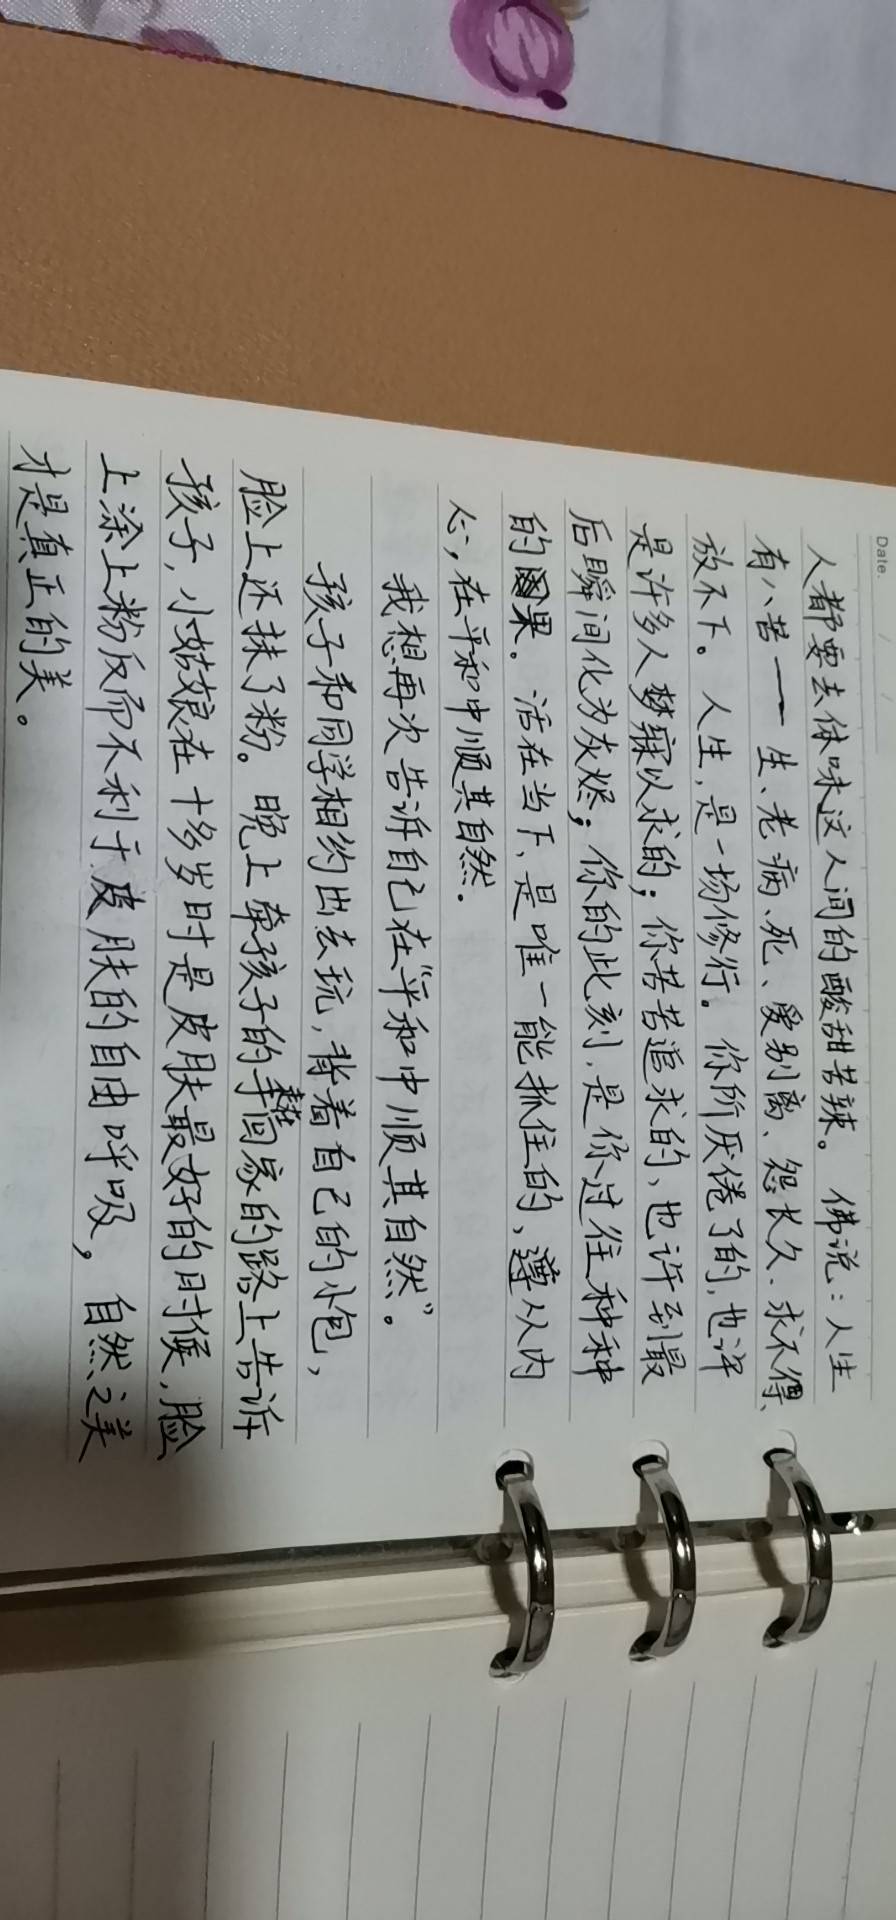 Date.
人都要去体味这人间的酸甜苦辣。佛说：人生
有八苦——生、老、病、死、爱别离、怨长久、求不得、
放不下。人生，是一场修行。你所厌倦了的，也许
是许多人梦寐以求的；你苦苦追求的，也许到最
后瞬间化为灰烬；你的此刻，是你过往种种
的因果。活在当下，是唯一能抓住的，遵从内
心，在平和中顺其自然.
我想再次告诉自己在“平和中顺其自然”。
孩子和同学相约出去玩，背着自己的小包，
脸上还抹了粉。晚上牵孩子的手回家的路上告诉
孩子，小姑娘在十多岁时是皮肤最好的时候，脸
上涂上粉反而不利于皮肤的自由呼吸，自然之美
才是真正的美。